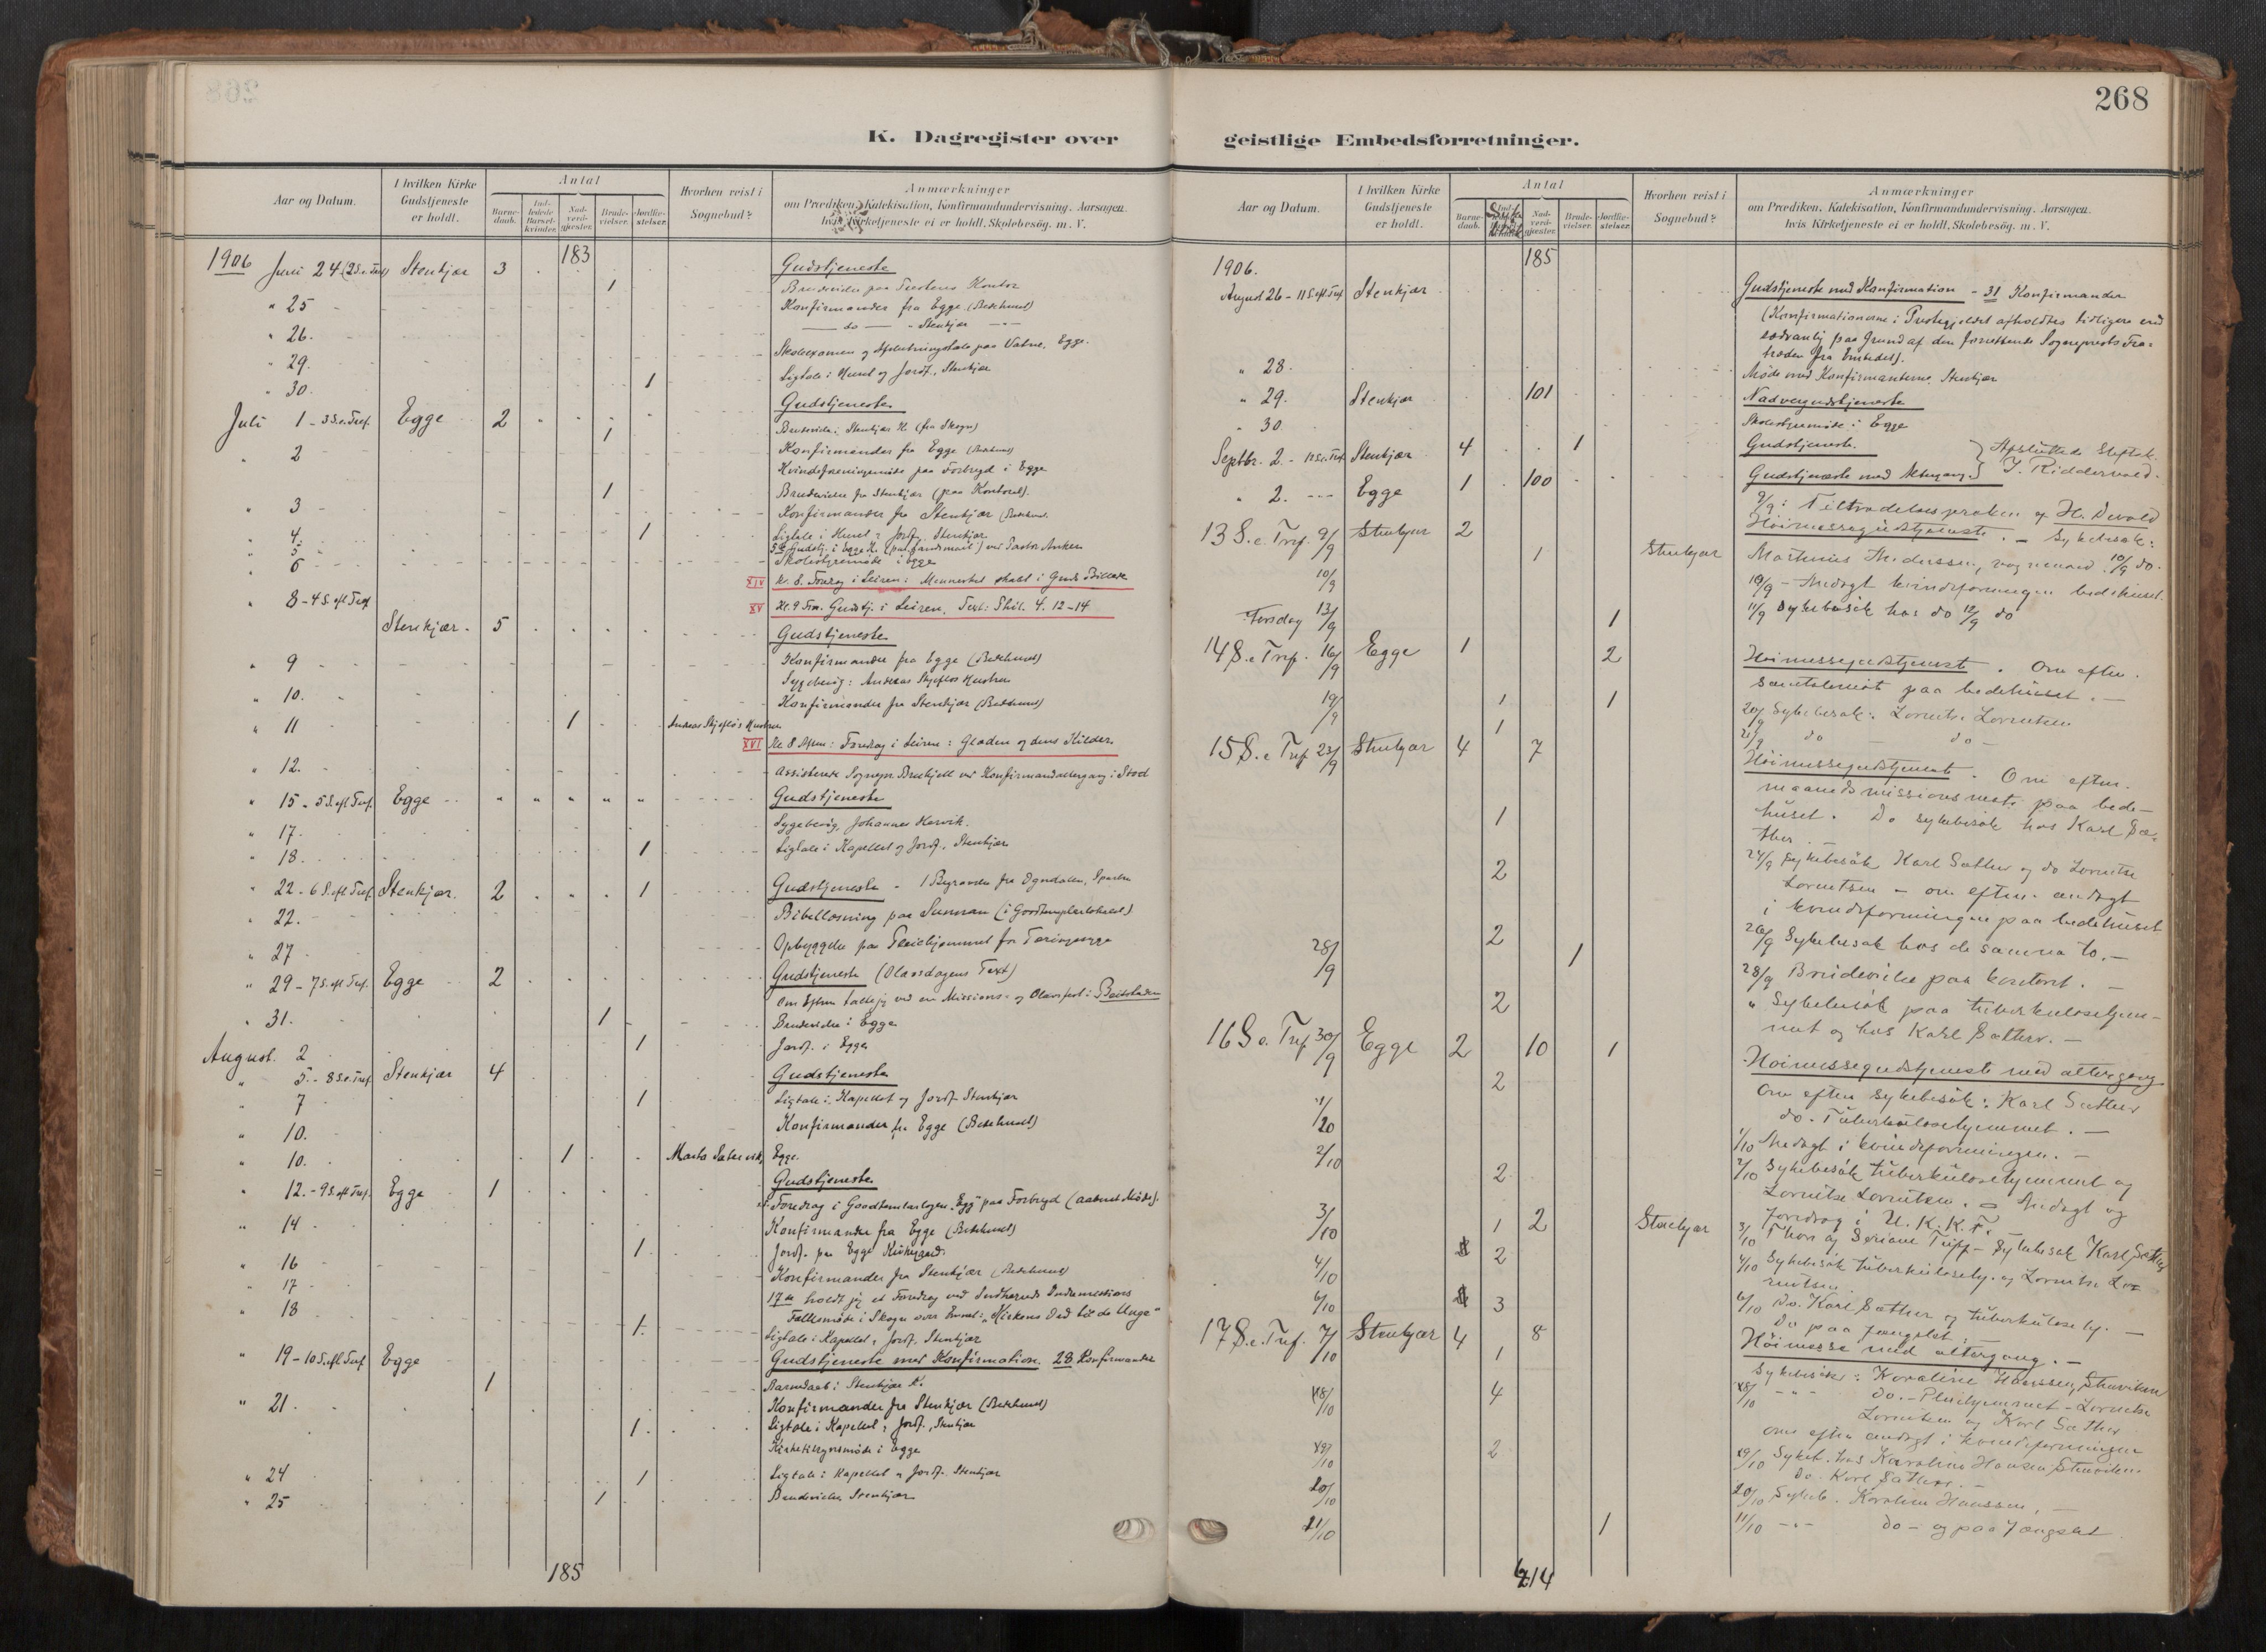 268
K. Dagregister over geistlige Embedsforretninger.
Aar og Datum.
I hvilken Kirke Gudstjeneste er holdt.
Antal
Barne-daab.
Ind-ledede Barsel-kvinder.
Nad-verd-gjæster.
Brude-vielser.
Jordfæ-stelser.
Hvorhen reist i Sognebud?
Anmærkninger
om Prædiken, Katekisation, Konfirmandundervisning, Aarsagen, hvis Kirketjeneste ei er holdt, Skolebesøg, m. V.
183
1906 Juni 24 (2 S. e. Tref) Stenkjær 3 Gudstjeneste
1 Brudevielse paa Kontor
" 25 Konfirmander fra Egge (Bedehuset)
" 26. do " Stenkjær
" 29. Skoleexamen og Afslutningstale paa Egge.
" 30. 1 Ligtale i Huset og Jordf., Stenkjær
Juli 1 - 3 S. e. Tref. Egge 2 Gudstjeneste
1 Brudevielse i Stenkjær K. (fra Skogn)
" 2 Konfirmander fra Egge (Bedehuset)
Kvindeforeningsmøde paa Forbryd i Egge
1 Brudevielse fra Stenkjær (paa Kontoret).
" 3 Konfirmander fra Stenkjær (Bedehuset)
" 4. 1 Ligtale i Huset, Jordf. Stenkjær
" 5 Gudstj. i Egge K. ved Pastor Anker
" 6 Skolestyremøde i Egge
XIV Kl. 8. Foredrag i Leiren: Mennesket skabt i Guds Billede
" 8 - 4 S. eft Tref XV Kl. 9 Fm. Gudstj. i Leiren. Text: Phil. 4. 12-14
Stenkjær. 5 Gudstjeneste
" 9 Konfirmander fra Egge (Bedehuset)
Sygebesøg: Andreas Skjefloes Hustru
" 10. Konfirmander fra Stenkjær (Bedehuset)
" 11 1 Andreas Skjefloe's Hustru
XVI Kl. 8 Aften: Foredrag i Leiren: Glæden og dens Kilder.
" 12. Assisterede Sognepr. ved Konfirmandaltergang i Stod
" 15 - 5 S. eft Tref. Egge " " " " " Gudstjeneste
" 17. Sygebesøg, Johannes
" 18. 1 Ligtale i Kapellet og Jordf. Stenkjær
" 22 - 6 S. eft Tref. Stenkjær. 2 1 Gudstjeneste - 1 fra Ogndalen, Sparbu
" 22. Bibellæsning paa Sunnan (i Goodtemplarlokalet)
" 27 Opbyggelse paa Pleiehjemmet for Tæringssyge
" 29 - 7 S. eft Tref. Egge 2 Gudstjeneste (Olavsdagens Text)
Om Eftm. talte jeg ved en Missions- og Olavsfest i Beitstaden
" 31. 1 Brudevielse i Egge
August. 2 1 Jordf. i Egge
" 5. - 8 S. e. Tref. Stenkjær 4 Gudstjeneste
" 7 1 Ligtale i Kapellet og Jordf. Stenkjær
" 10. Konfirmander fra Egge (Bedehuset)
" 10. 1 Marta Egge.
" 12. - 9 S. eft Tref. Egge 1 Gudstjeneste
Foredrag i Goodtemplarlogen "Egg" paa Forbryd (aabent Møde).
" 14 Konfirmander fra Egge (Bedehuset)
1 Jordf. paa Egge Kirkegaard.
" 16 Konfirmander fra Stenkjær (Bedehuset)
" 17 17de holdt jeg et Foredrag ved Indherreds
Fællesmøde i Skogn over Emnet: "Kirkens Ord til de Unge"
" 18 1 Ligtale i Kapellet, Jordf. Stenkjær
" 19 - 10 S. eft Tref Egge Gudstjeneste med Konfirmation. 28 Konfirmander
1 Barnedaab i Stenkjær K.
" 21. Konfirmander fra Stenkjær (Bedehuset)
1 Ligtale i Kapellet, Jordf., Stenkjær
Kirketilsynsmøde i Egge
" 24 1 Ligtale i Kapellet, Jordf. Stenkjær
" 25 1 Brudevielse, Stenkjær
185
Aar og Datum.
I hvilken Kirke Gudstjeneste er holdt.
Antal
Barne-daab.
Nad-verd-gjæster.
Brude-vielser.
Jordfæ-stelser.
Hvorhen reist i Sognebud?
Anmærkninger
om Prædiken, Katekisation, Konfirmandundervisning, Aarsagen, hvis Kirketjeneste ei er holdt, Skolebesøg, m. V.
185
1906.
August 26 - 11 S. eft Tref Stenkjær Gudstjeneste med Konfirmation - 31 Konfirmander
(Konfirmationerne i Præstegjeldet afholdtes tidligere end
sædvanlig paa Grund af den forrettende Sogneprests Fra-
træden fra Embedet).
" 28. Møde med Konfirmanterne, Stenkjær
" 29. Stenkjær 101 Nadvergudstjeneste
" 30 Skolestyremøde i Egge
Septbr. 2. - 12 S. e. Tref. Stenkjær 4 1 Gudstjeneste.
" 2. Egge 1 100 Gudstjeneste med Altergang. J. Riddervold.
9/9: Tiltrædelsespræken af H. Devold
13 S. e. Tref. 9/9 Stenkjær 2 Høimessegudstjeneste. - Sykebesøk:
1 Stenkjær Martinius 10/9 do.
10/9 10/9 - Andagt kvindeforeningen bedehuset.
Torsdag 13/9 1 11/9 Sykebesøk hos do 12/9 do
14 S. e. Tref. 16/9 Egge 1 2 Høimessegudstjeneste. Om eftm.
paa bedehuset. -
19/9 1 1 20/9 Sykebesøk: Lorentse Lorentsen
1 21/9 do - do -
15 S. e Tref 23/9 Stenkjær 4 7 Høimessegudstjeneste. Om eftm.
maanedsmissionsmøte paa bede-
1 huset. Do sykebesøk hos Karl Sæ-
ther. -
2 24/9 Sykebesøk Karl Sæther og do Lorentse
Lorentsen - om eftm. andagt
i kvindeforeningen paa bedehuset
2 26/9 Sykebesøk hos de samme to. -
28/9 1 28/9 Brudevielse paa kontoret. -
2 " Sykebesøk paa tuberkulosehjem-
met og hos Karl Sæther. -
16 S e. Tref 30/9 Egge 2 10 1 Høimessegudstjeneste med altergang
2 Om eftm sykebesøk: Karl Sæther
do. Tuberkulosehjemmet. -
1/10 Andagt i kvindeforeningen. -
2/10 2 2/10 Sykebesøk tuberkulosehjemmet og
Lorentse Lorentsen. - Andagt og
foredrag i U. K. K. F. -
3/10 1 2 Stenkjær 3/10 Thore og - Sykebesøk Karl Sæther
4/10 2 4/10 Sykebesøk tuberkulosehj. og Lorentse Lo-
rentsen
6/10 3 6/10 Do. Karl Sæther og tuberkulosehj. -
Do paa fængslet. -
17 S. e. Tref. 7/10 Stenkjær 4 8 Høimesse med altergang. -
1 Sykebesøk: Karoline Hanssen,
8/10 4 8/10 - " - do. - Pleiehjemmet - Lorentse
Lorentsen og Karl Sæther
om eftm andagt i kvindeforeningen
9/10 2 9/10 Sykeb. hos Karoline Hansen
Do. Karl Sæther. -
10/10 10/10 Sykeb. Karoline Hanssen. -
11/10 1 11/10 - " - do - og paa fængslet
214